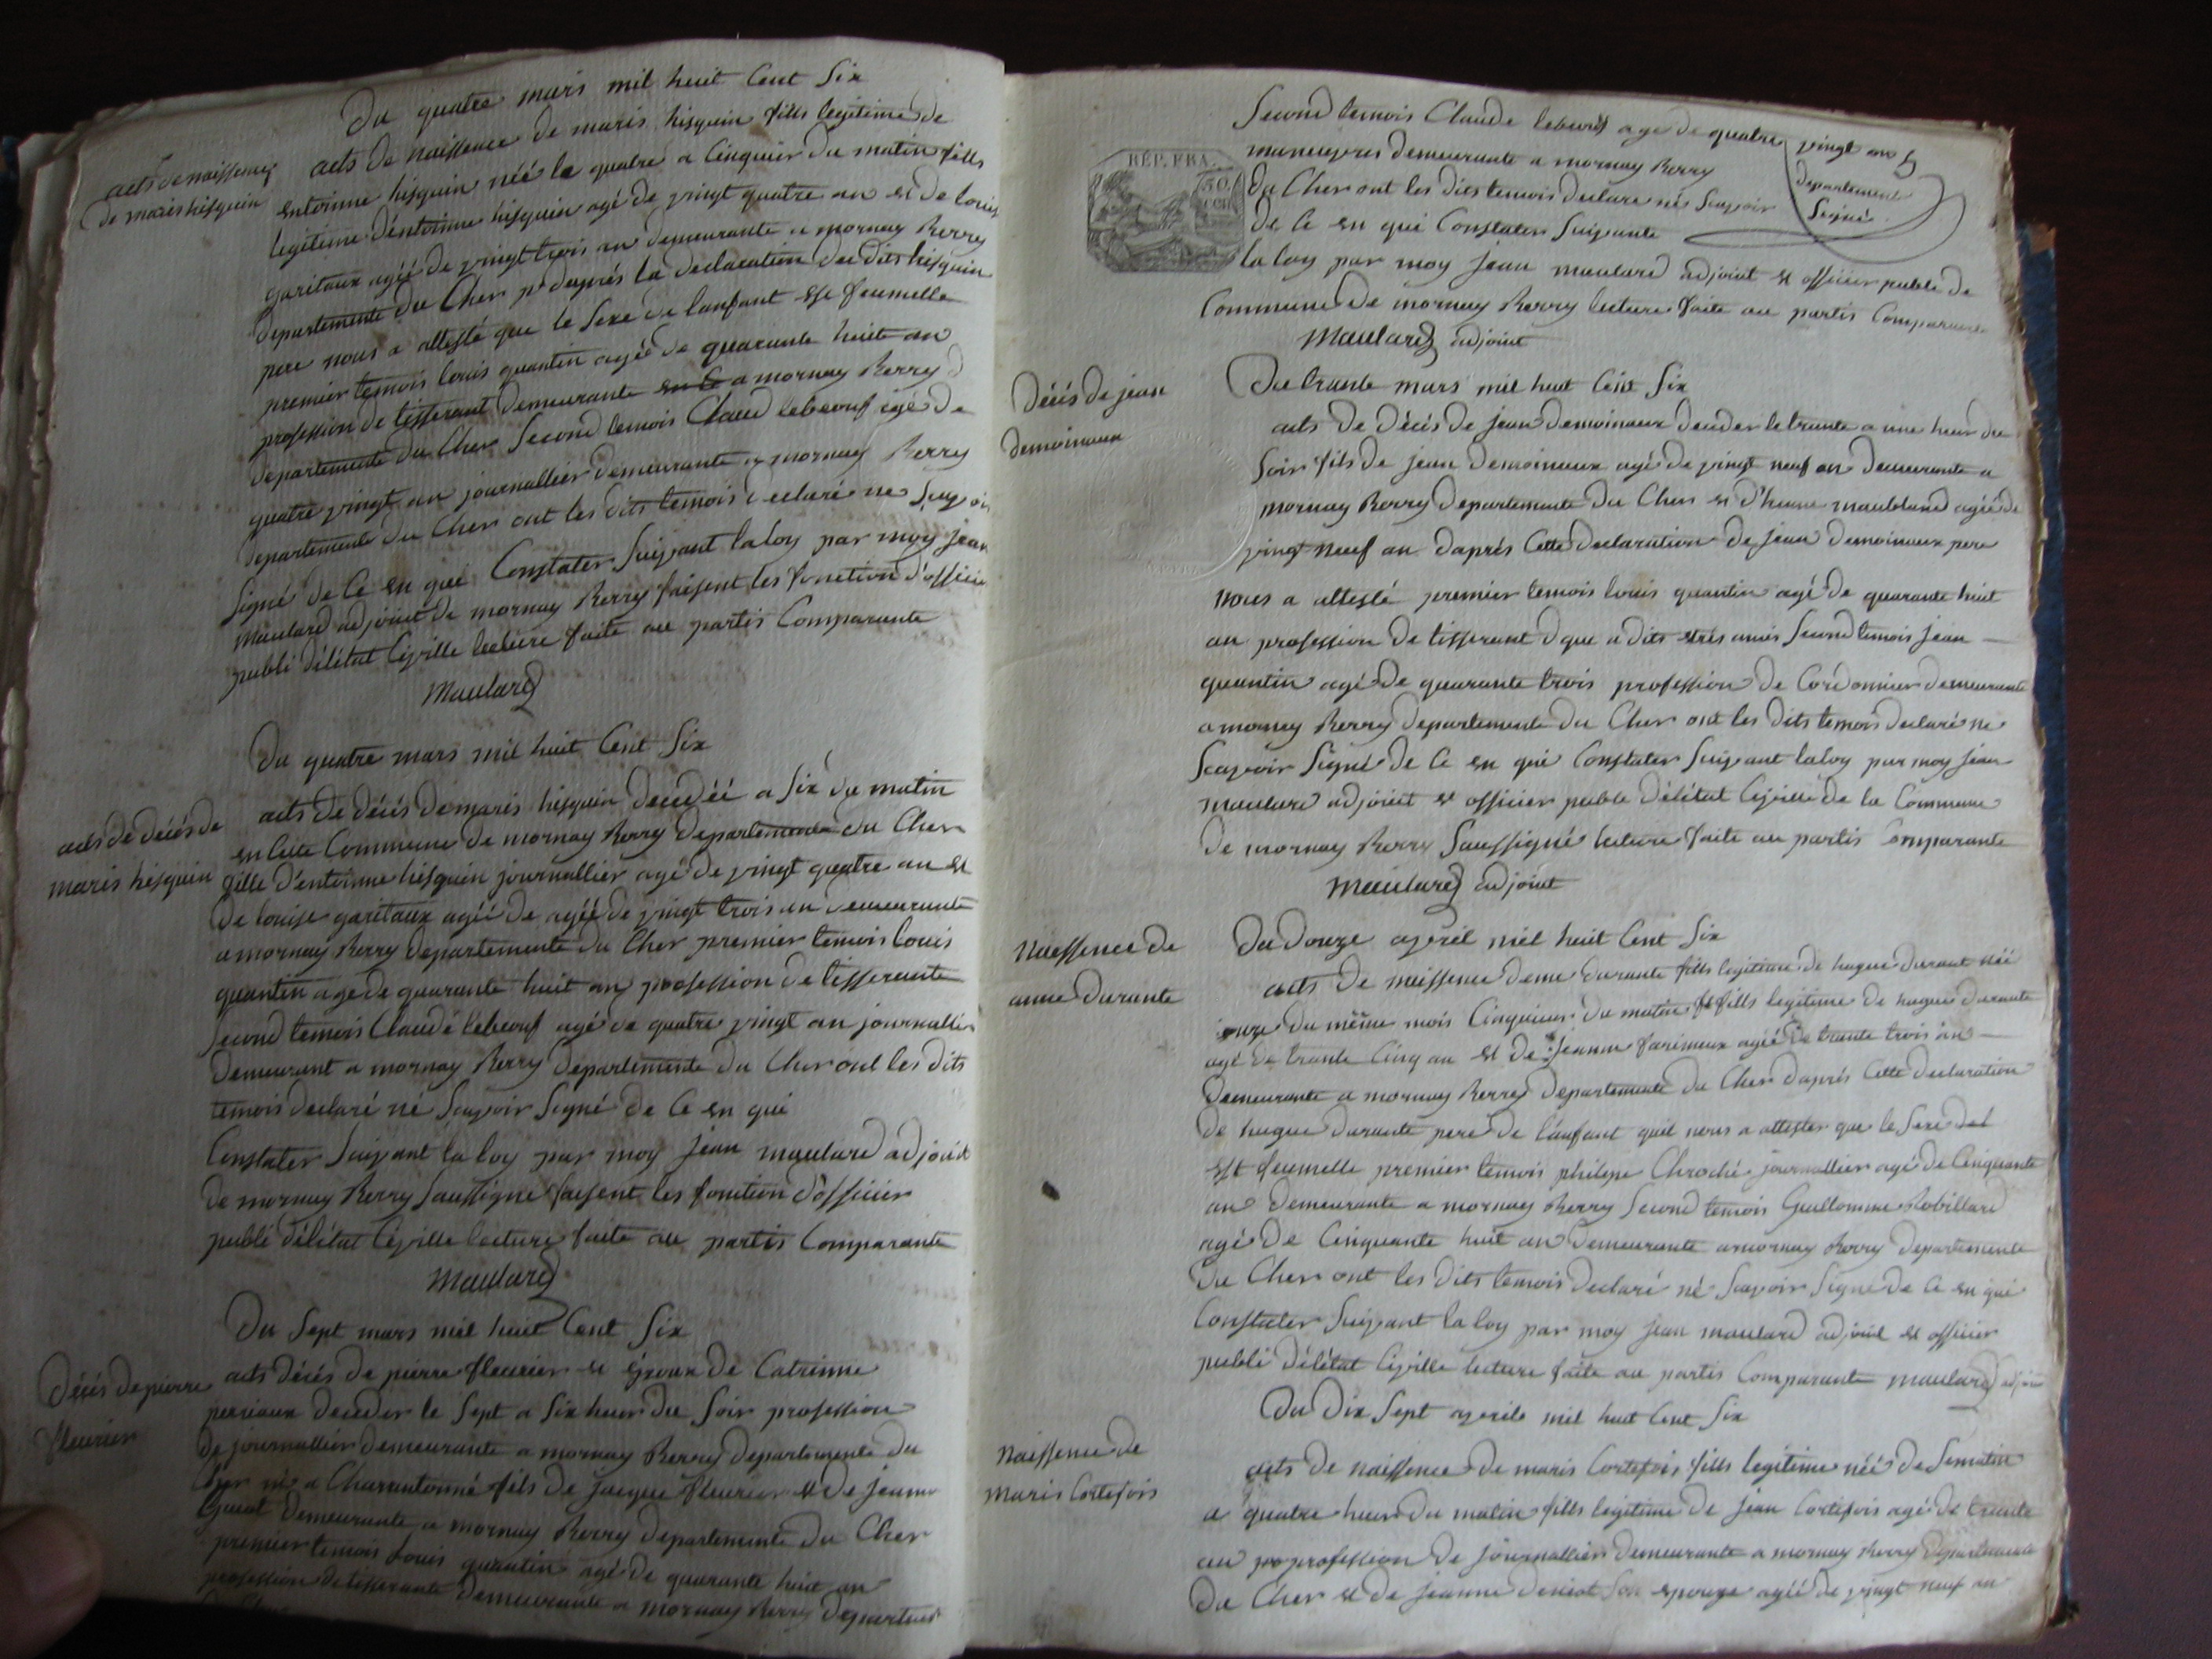 Du quatre mars mil huit Cent Six
acts de naissence
de maris hisquin
acts de naissence de maris hisquin fills legitime de
entoinne hisquin néé le quatre a Cinquier du matin fills
legitime d'entoinne hisquin agé de vingt quatre an et de louise
garitaux agéé de vingt trois an demeurante a mornay Berry
departemente du Cher daprés la declaration du dits hisquin
pere nous a attesté que le Sexe de lanfant est feumelle
premier temois louis quantin agéé de quarante huite an
profession de tisserant demeurante a mornay Berry
departemente du Cher Second temois Claud lebeouf agé de
quatre vingt an journallier demeurante a mornay Berry
departemente du Cher ont les dits temois declaré ne Sçavoir
Signé de Ce en que Constater Suivant la loy par moy jean
maulard adjoint de mornay Berry faisent les fonction d'officier
publi délétat Civille lecture faite au partis Comparante
Maulard
Du quatre mars mil huit Cent Six
acts de décés de
maris hisquin
acts de décés de maris hisquin decedéé a Six du matin
en Cette Commune de mornay Berry departemente du Cher
fille d'entoinne hisquin journallier agé de vingt quatre an et
de louise garitaux agéé de agéé de vingt trois an demeurante
a mornay Berry departemente du Cher premier temois louis
quantin age de quarante huit an profession de tisserante
Second temois Claude lebeouf agé de quatre vingt an journallier
demeurant a mornay Berry departemente du Cher ont les dits
temois declaré né Sçavoir Signé de Ce en que
Constater Suivant la loy par moy jean maulard adjoint
de mornay Berry Saussigné faisent les fonction d'officier
publi délétat Civille lecture faite au partis Comparante
Maulard
Du Sept mars mil huit Cent Six
Décés de pierre
fleurier
acts décés de pierre fleurier et époux de Catrinne
perriaux deceder le Sept a Six heur du Soir profession
de journallier demeurante a mornay Berry departemente du
Cher né a Charantonné fils de jacque fleurier et de jeanne
Gueat demeurante a mornay Berry departemente du Cher
premier temois louis quantin agé de quarante huit an
profession de tisserante demeurante a mornay Berry departemente
Second temois Claude lebeouf age de quatre vingt an
maneuvres demeurante a mornay Berry departement
du Cher ont les dits temois declare né Sçavoir Signé
de Ce en que Constater Suivante
la loy par moy jean maulard adjoint et officier publi de
Commune de mornay Berry lecture faite au partis Comparante
RÉP. FRA.
50
CEN
Maulard adjoint
Du trante mars mil huit Cent Six
Décés de jean
demoinaux
acts de décés de jean demoinaux deceder le trante a une heur du
Soir fils de jean demoinaux agé de vingt neuf an demeurante a
mornay Berry departemente du Cher et d'heune maublard agéé de
vingt neuf an daprés Cette declaration de jean demoinaux pere
nous a attesté premier temois louis quantin agé de quarante huit
an profession de tisserant que a dits etres amis Second temois jean
quantin agé de quarante trois profession de Cordonnier demeurante
a mornay Berry departemente du Cher ont les dits temois declaré ne
Sçavoir Signé de Ce en que Constater Suivant la loy par moy jean
maulard adjoint et officier publi délétat Civille de la Commune
de mornay Berry Saussigné lecture faite au partis Comparante
Maulard adjoint
Du douze avril mil huit Cent Six
Naissence de
anne durante
acts de naissence deune durante fills legitime de hugue durant néé
onze du même mois Cinquieur du matin fills legitime de hugue durante
agé de trante Cinq an et de jeanne farineux agéé de trante trois an
demeurante a mornay Berry departemente du Cher daprés Cette declaration
de hugue durante pere de lanfant quil nous a attester que le Sexe del
est feumelle premier temois philipe Chroché journallier agé de Cinquante
an demeurante a mornay Berry Second temois Guillomme Robillard
agé de Cinquante huit an demeurante a mornay Berry departemente
du Cher ont les dits temois declaré né Sçavoir Signé de Ce en que
Constater Suivant la loy par moy jean maulard adjoint et officier
publi délétat Civille lecture faite au partis Comparante maulard adjoint
Du Dix Sept avrile mil huit Cent Six
Naissence de
Maris Cortefois
acts de naissence de maris Cortefois fills legitime néé de Sematin
a quatre heur du matin fills legitime de jean Cortefois agé de trante
an profession de journallier demeurante a mornay Berry departemente
du Cher et de jeanne deniot Son epouze agéé de vingt neuf an